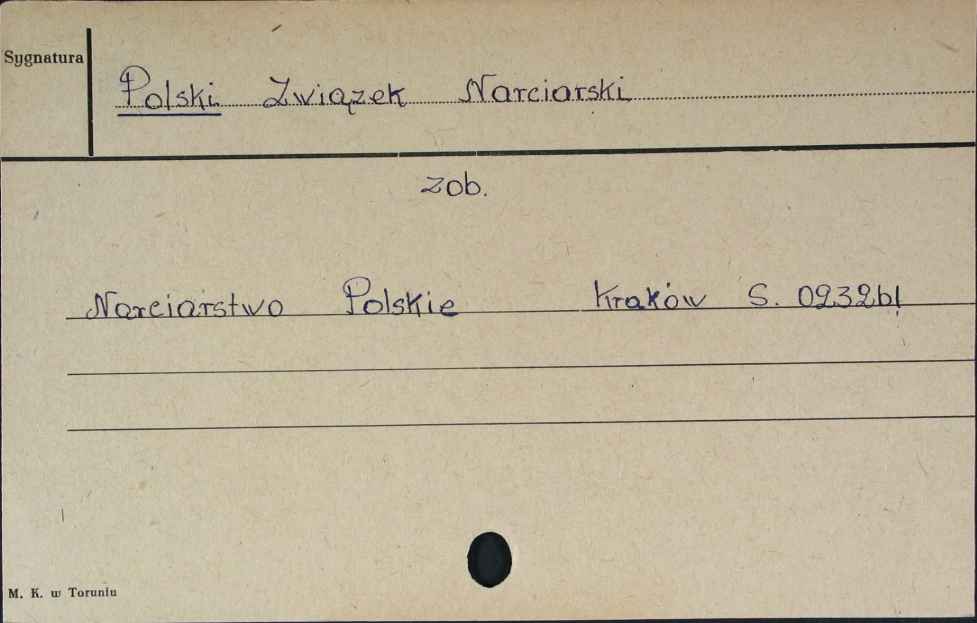 Sygnatura
Polski Związek Narciarski
zob.
Narciarstwo Polskie Kraków S. 0232b!
M. K. w Toruniu